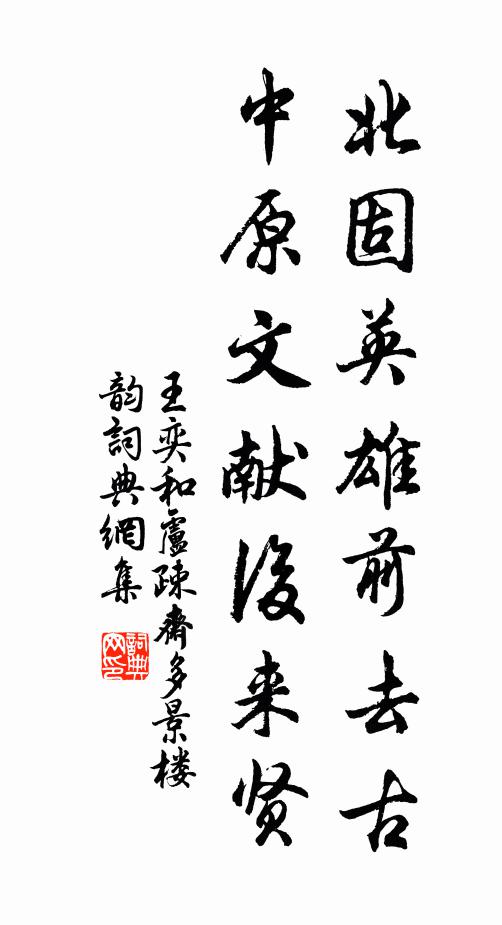 北固英雄前去古
中原文献後来贤
王奕和盧疎齋多景楼
韵詞典網集
詞典网印